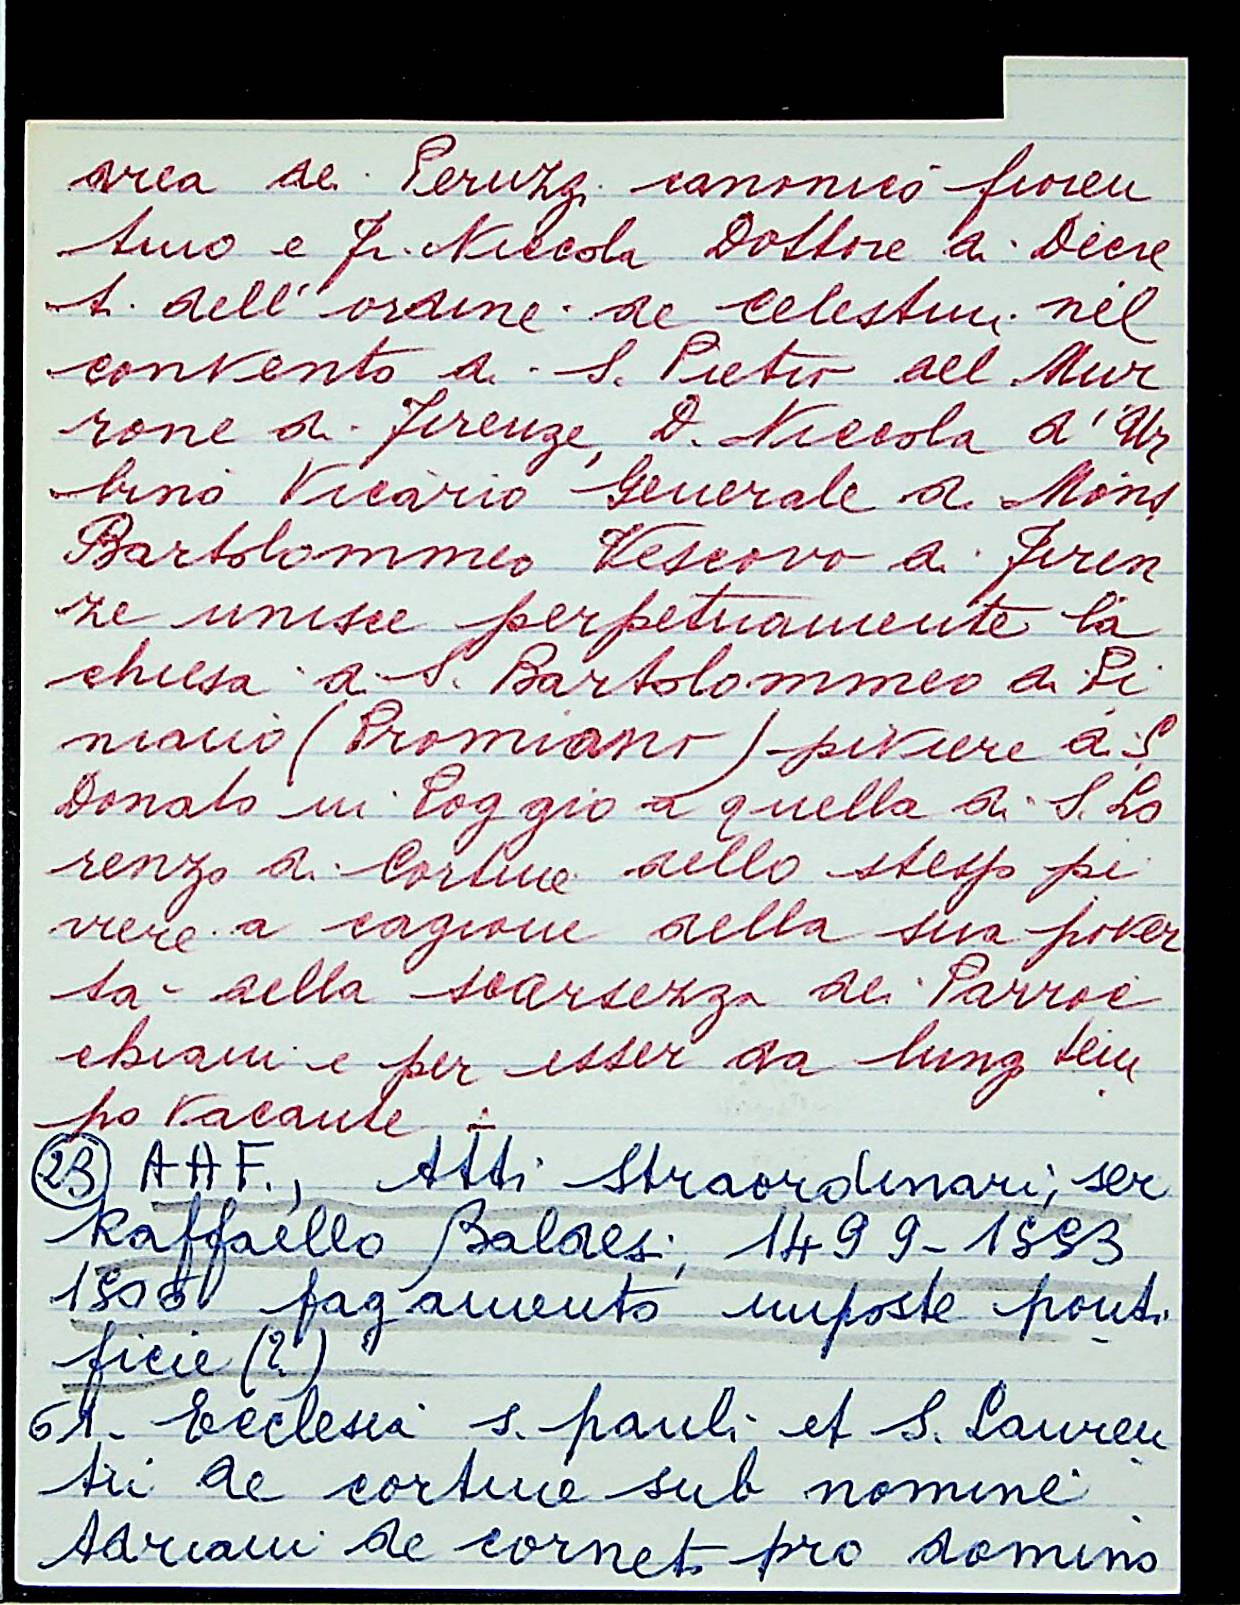 drea de Peruzzi canonico fioren
tino e Fr. Niccola Dottore di Decre
ti dell'ordine de Celestini nel
convento di S. Pietro del Mur
rone di Firenze, D. Niccola d'Ur
bino Vicario Generale di Mons
Bartolommeo Vescovo di Firen
ze unisce perpetuamente la
chiesa di S. Bartolommeo di Pi
miano (Promiano) piviere di S
Donato in Poggio a quella di S. Lo
renzo di Cortine dello stesso pi
viere a cagione della sua pover
tà della scarsezza dei Parroc
chiani e per esser da lungo tem
po vacante
(23) AAF., Atti straordinari, ser
Raffaello Baldesi, 1499-1553
pagamento imposte ponti
ficie (?)
61. Ecclesia s. pauli et S. Lauren
tii de cortine sub nomine
Adriani de corneto pro domino